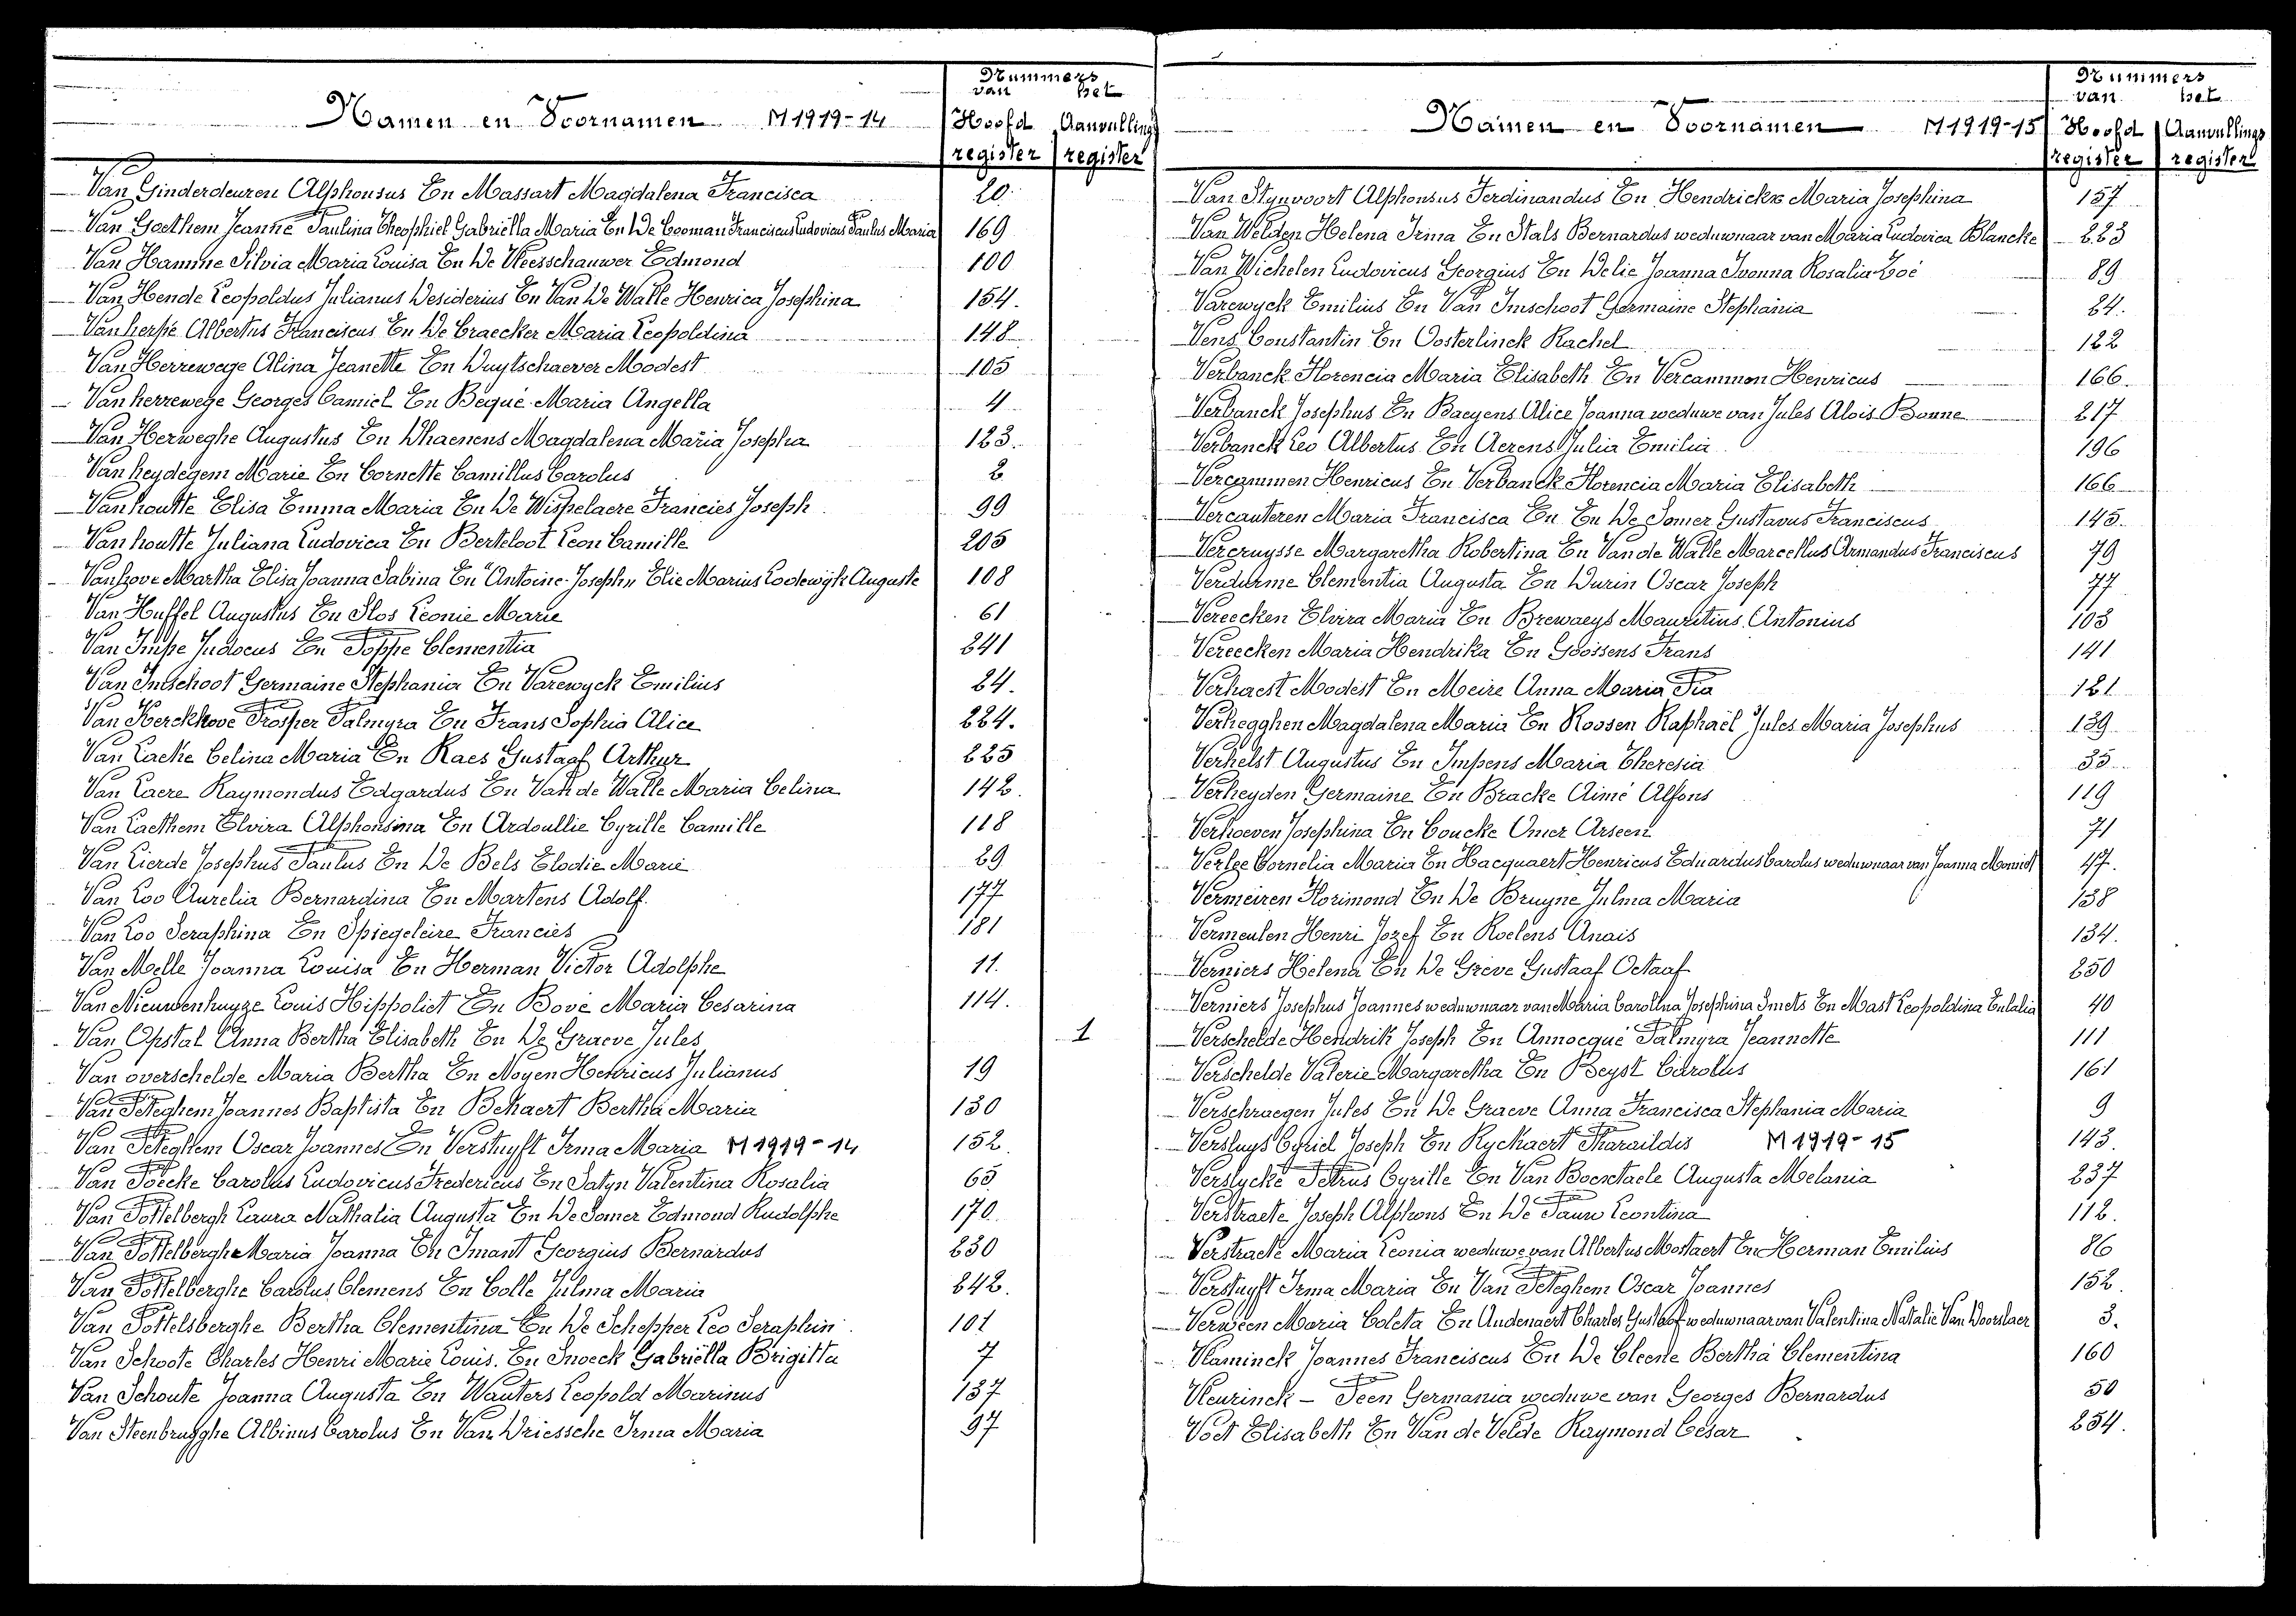 Nummers
van het
Namen en Voornamen M1919-14 Hoofd Aanvullings
register register
Van Ginderdeuren Alphonsus En Massart Magdalena Francisca 20.
Van Goethem Jeanne Paulina Theophiel Gabriëlla Maria En De Cooman Franciscus Ludovicus Paulus Maria 169
Van Hamme Silvia Maria Louisa En De Vleesschauwer Edmond 100
Van Hende Leopoldus Julianus Desiderius En Van De Walle Henrica Josephina 154.
Vanherpe Albertus Franciscus En De Craecker Maria Leopoldina 148
Van Herrewege Alina Jeanette En Duytschaever Modest 105
Vanherrewege Georges Camiel En Bequé Maria Angella 4
Van Herweghe Augustus En Dhaenens Magdalena Maria Josepha 123.
Vanheydegem Marie En Cornette Camillus Carolus 2
Vanhoutte Elisa Emma Maria En De Wispelaere Francies Joseph 99
Vanhoutte Juliana Ludovica En Berteloot Leon Camille 205
Vanhove Martha Elisa Joanna Sabina En "Antoine-Joseph" Elie Marius Lodewijk Auguste 108
Van Huffel Augustus En Slos Leonie Marie 61
Van Impe Judocus En Poppe Clementia 241
Van Imschoot Germaine Stephania En Varewyck Emilius 24.
Van Kerckhove Prosper Palmyra En Frans Sophia Alice 224.
Van Lacke Celina Maria En Raes Gustaaf Arthur 225
Van Laere Raymondus Edgardus En Van de Walle Maria Celina 142.
Van Laethem Elvira Alphonsina En Ardoullie Cyrille Camille 118
Van Lierde Josephus Paulus En De Bels Elodie Marie 29
Van Loo Aurelia Bernardina En Martens Adolf. 177
Van Loo Seraphina En Spiegeleire Francies 181
Van Melle Joanna Louisa En Herman Victor Adolphe 11.
Van Nieuwenhuyze Louis Hippoliet En Bové Maria Cesarina 114.
Van Opstal Anna Bertha Elisabeth En De Graeve Jules 1
Van overschelde Maria Bertha En Noyen Henricus Julianus 19
Van Peteghem Joannes Baptista En Bekaert Bertha Maria 130
Van Peteghem Oscar Joannes En Verstuyft Irma Maria M1919-14 152
Van Poecke Carolus Ludovicus Fredericus En Satyn Valentina Rosalia 65
Van Pottelbergh Laura Nathalia Augusta En De Somer Edmond Rudolphe 170
Van Pottelberghe Maria Joanna En Imant Georgius Bernardus 230
Van Pottelberghe Carolus Clemens En Colle Julma Maria 242.
Van Pottelsberghe Bertha Clementina En De Schepper Leo Seraphin 101
Van Schoote Charles Henri Marie Louis. En Snoeck Gabriëlla Brigitta 7
Van Schoute Joanna Augusta En Wauters Leopold Marinus 137
Van Steenbrugghe Albinus Carolus En Van Driessche Irma Maria 97
Nummers
van het
Namen en Voornamen M1919-15 Hoofd Aanvullings
register register
Van Stynvoort Alphonsus Ferdinandus En Hendrickx Maria Josephina 157
Van Welden Helena Irma En Stals Bernardus weduwnaar van Maria Ludovica Blancke 223
Van Wichelen Ludovicus Georgius En Delie Joanna Ivonna Rosalia Zoé 89
Varewyck Emilius En Van Imschoot Germaine Stephania 24.
Vens Constantin En Oosterlinck Rachel 122
Verbanck Florencia Maria Elisabeth En Vercammen Henricus 166.
Verbanck Josephus En Baeyens Alice Joanna weduwe van Jules Alois Bonne 217
Verbanck Leo Albertus En Aerens Julia Emilia 196
Vercammen Henricus En Verbanck Florencia Maria Elisabeth 166
Vercauteren Maria Francisca En En De Somer Gustavus Franciscus 145.
Vercruysse Margaretha Robertina En Van de Walle Marcellus Armandus Franciscus 79
Verdurme Clementia Augusta En Durin Oscar Joseph 77
Vereecken Elvira Maria En Brewaeys Mauritius Antonius 103
Vereecken Maria Hendrika En Goossens Frans 141
Verhaest Modest En Meire Anna Maria Pia 121
Verhegghen Magdalena Maria En Roosen Raphaël Jules Maria Josephus 139
Verhelst Augustus En Impens Maria Theresia 35
Verheyden Germaine En Bracke Aimé Alfons 119
Verhoeven Josephina En Coucke Omer Arseen 71
Verlee Cornelia Maria En Hacquaert Henricus Eduardus Carolus weduwnaar van Joanna 47.
Vermeiren Florimond En De Bruyne Julma Maria 138
Vermeulen Henri Jozef En Roelens Anais 134.
Verniers Helena En De Grève Gustaaf Octaaf 250
Verniers Josephus Joannes weduwnaar van Maria Carolina Josephina Smets En Mast Leopoldina Eulalia 40
Verschelde Hendrik Joseph En Annocqué Palmyra Jeannette 111
Verschelde Valerie Margaretha En Beyst Carolus 161
Verschraegen Jules En De Graeve Anna Francisca Stephania Maria 9
Versluys Cyriel Joseph En Ryckaert Pharaildis M1919-15 143
Verslycke Petrus Cyrille En Van Bocxstaele Augusta Melania 237
Verstraete Joseph Alphons En De Pauw Leontina 112.
Verstraete Maria Leonia weduwe van Albertus Mostaert En Herman Emilius 86
Verstuyft Irma Maria En Van Peteghem Oscar Joannes 152.
Verween Maria Coleta En Audenaert Charles Gustaaf weduwnaar van Valentina Natalie Van Doorslaer 3.
Vlaminck Joannes Franciscus En De Cleene Bertha Clementina 160
Vleurinck - Peen Germania weduwe van Georges Bernardus 50
Voet Elisabeth En Van de Velde Raymond Cesar 254.